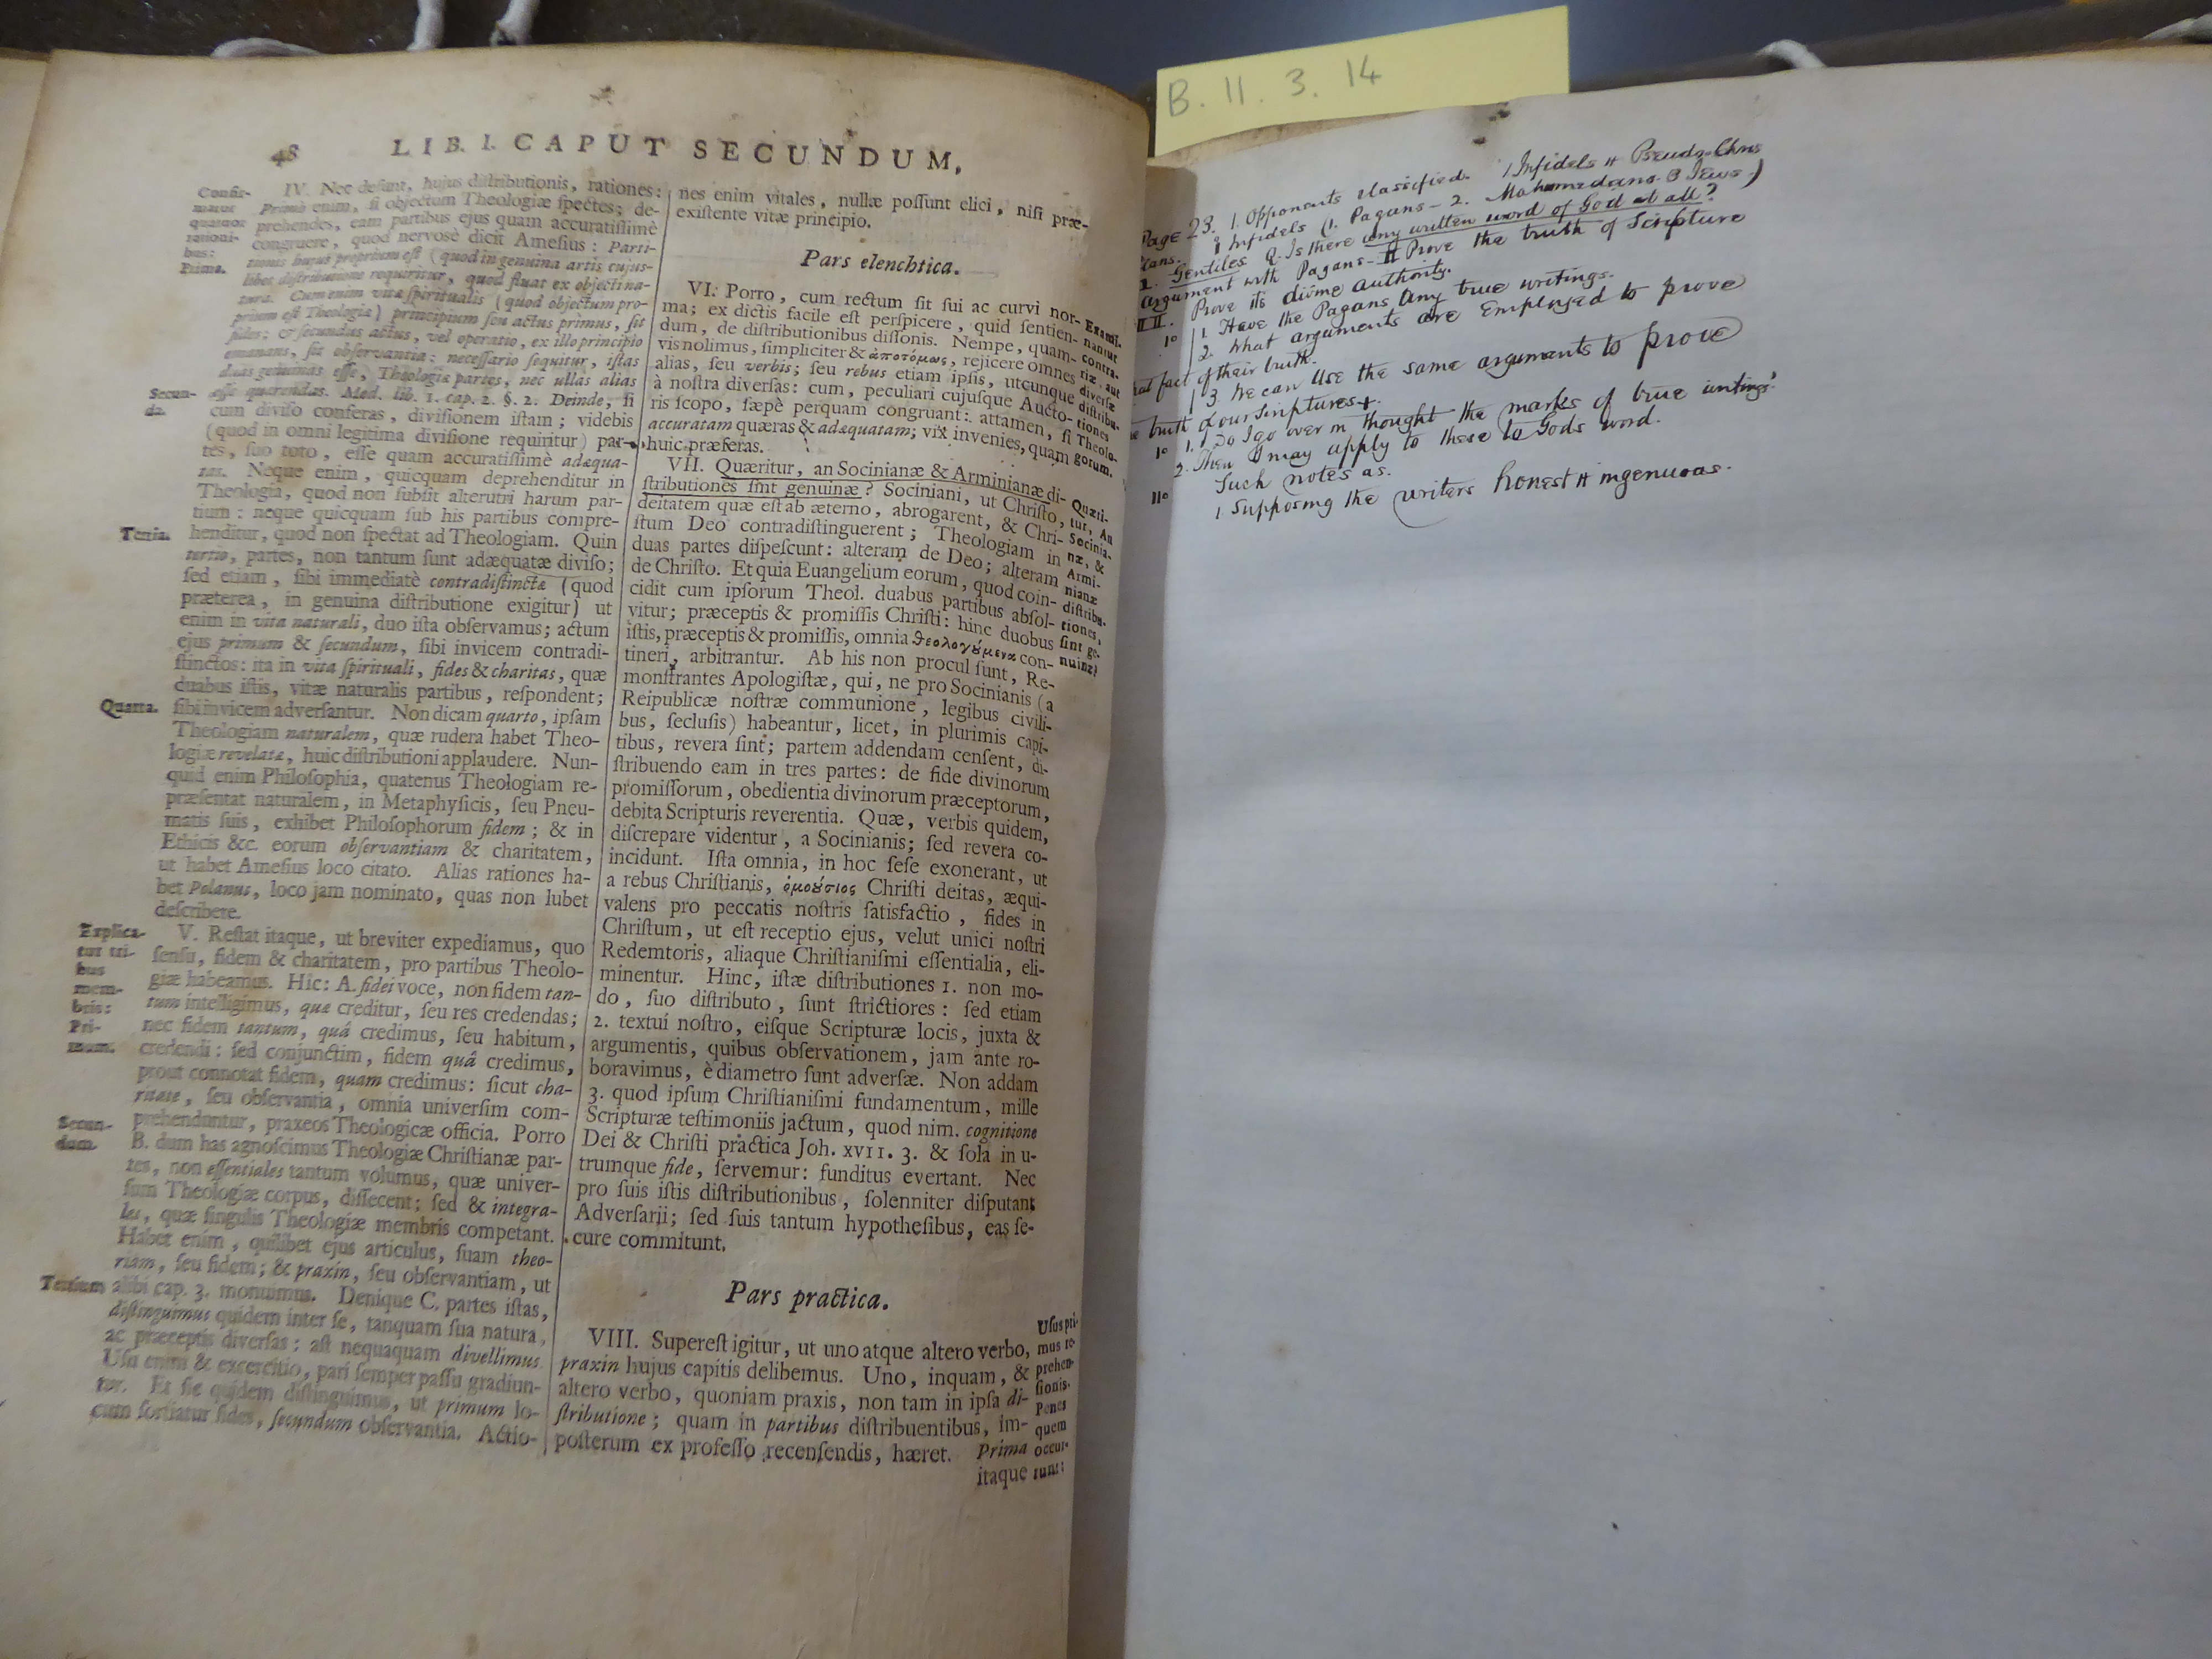 48 LIB. I. CAPUT SECUNDUM.
Confir-
matur
quatuor
rationi-
bus:
Prima.
IV. Nec desunt, hujus distributionis, rationes:
Primò enim, si objectum Theologiæ spectes; de-
prehendes, eam partibus ejus quam accuratissimè
congruere, quod nervosè dicit Amesius: Parti-
tionis hujus proprium est (quod in genuina artis cujus-
libet distributione requiritur, quod fluat ex objecti na-
tura. Cum enim vitæ spiritualis (quod objectum pro-
prium est Theologiæ) principium seu actus primus, sit
fides; & secundus actus, vel operatio, ex illo principio
emanans, sit observantia: necessario sequitur, istas
duas genuinas esse, Theologiæ partes, nec ullas alias
Secun-
da.
esse quærendas. Med. lib. 1. cap. 2. §. 2. Deinde, si
cum diviso conferas, divisionem istam; videbis
(quod in omni legitima divisione requiritur) par-
tes, suo toto, esse quam accuratissimè adæqua-
tas. Neque enim, quicquam deprehenditur in
Theologia, quod non subsit alterutri harum par-
tium: neque quicquam sub his partibus compre-
Tertia.
henditur, quod non spectat ad Theologiam. Quin
tertio, partes, non tantum sunt adæquatæ diviso;
sed etiam, sibi immediatè contradistinctæ (quod
præterea, in genuina distributione exigitur) ut
enim in vita naturali, duo ista observamus; actum
ejus primum & secundum, sibi invicem contradi-
stinctos: ita in vita spirituali, fides & charitas, quæ
duabus istis, vitæ naturalis partibus, respondent;
Quarta.
sibi invicem adversantur. Non dicam quarto, ipsam
Theologiam naturalem, quæ rudera habet Theo-
logiæ revelatæ, huic distributioni applaudere. Nun-
quid enim Philosophia, quatenus Theologiam re-
præsentat naturalem, in Metaphysicis, seu Pneu-
matis suis, exhibet Philosophorum fidem; & in
Ethicis &c. eorum observantiam & charitatem,
ut habet Amesius loco citato. Alias rationes ha-
bet Polanus, loco jam nominato, quas non lubet
describere.
Explica-
tur tri-
bus
mem-
bris:
Pri-
mum.
V. Restat itaque, ut breviter expediamus, quo
sensu, fidem & charitatem, pro partibus Theolo-
giæ habeamus. Hic: A. fidei voce, non fidem tan-
tum intelligimus, quæ creditur, seu res credendas;
nec fidem tantum, quâ credimus, seu habitum,
credendi: sed conjunctim, fidem quâ credimus,
prout connotat fidem, quam credimus: sicut cha-
ritate, seu observantia, omnia universim com-
prehenduntur, praxeos Theologicæ officia. Porro
Secun-
dum.
B. dum has agnoscimus Theologiæ Christianæ par-
tes, non essentiales tantum volumus, quæ univer-
sum Theologiæ corpus, dissecent; sed & integra-
les, quæ singulis Theologiæ membris competant.
Habet enim, quilibet ejus articulus, suam theo-
riam, seu fidem; & praxin, seu observantiam, ut
Tertium
alibi cap. 3. monuimus. Denique C. partes istas,
distinguimus quidem inter se, tanquam sua natura,
ac præceptis diversas: ast nequaquam divellimus.
Usu enim & exercitio, pari semper passu gradiun-
tur. Et sic quidem distinguimus, ut primum lo-
cum sortiatur fides, secundum observantia. Actio-
nes enim vitales, nullæ possunt elici, nisi præ-
existente vitæ principio.
Pars elenchtica.
VI. Porro, cum rectum sit sui ac curvi nor-
ma; ex dictis facile est perspicere, quid sentien-
dum, de distributionibus dissonis. Nempe, quam-
vis nolimus, simpliciter & ἀποτόμως, rejicere omnes
alias, seu verbis; seu rebus etiam ipsis, utcunque
à nostra diversas: cum, peculiari cujusque Aucto-
ris scopo, sæpè perquam congruant: attamen, si
accuratam quæras & adæquatam; vix invenies, quam
huic præferas.
Exami-
nantur
contra-
riæ, aut
diversæ
distribu-
tiones
Theolo-
gorum.
VII. Quæritur, an Socinianæ & Arminianæ di-
stributiones sint genuinæ? Sociniani, ut Christo,
deitatem quæ est ab æterno, abrogarent, & Chri-
stum Deo contradistinguerent; Theologiam in
duas partes dispescunt: alteram de Deo; alteram
de Christo. Et quia Euangelium eorum, quod coin-
cidit cum ipsorum Theol. duabus partibus absol-
vitur; præceptis & promissis Christi: hinc duobus
istis, præceptis & promissis, omnia θεολογούμενα con-
tineri, arbitrantur. Ab his non procul sunt, Re-
monstrantes Apologistæ, qui, ne pro Socinianis (a
Reipublicæ nostræ communione, legibus civili-
bus, seclusis) habeantur, licet, in plurimis capi-
tibus, revera sint; partem addendam censent, di-
stribuendo eam in tres partes: de fide divinorum
promissorum, obedientia divinorum præceptorum,
debita Scripturis reverentia. Quæ, verbis quidem,
discrepare videntur, a Socinianis; sed revera co-
incidunt. Ista omnia, in hoc sese exonerant, ut
a rebus Christianis, ὁμούσιος Christi deitas, æqui-
valens pro peccatis nostris satisfactio, fides in
Christum, ut est receptio ejus, velut unici nostri
Redemtoris, aliaque Christianismi essentialia, eli-
minentur. Hinc, istæ distributiones 1. non mo-
do, suo distributo, sunt strictiores: sed etiam
2. textui nostro, eisque Scripturæ locis, juxta &
argumentis, quibus observationem, jam ante ro-
boravimus, è diametro sunt adversæ. Non addam
3. quod ipsum Christianismi fundamentum, mille
Scripturæ testimoniis jactum, quod nim. cognitione
Dei & Christi practica Joh. XVII. 3. & sola in u-
trumque fide, servemur: funditus evertant. Nec
pro suis istis distributionibus, solenniter disputant
Adversarii; sed suis tantum hypothesibus, eas se-
cure committunt.
Quæri-
tur, An
Socinia-
næ, &
Armi-
nianæ
distribu-
tiones,
sint ge-
nuinæ?
Pars practica.
VIII. Superest igitur, ut uno atque altero verbo,
praxin hujus capitis delibemus. Uno, inquam, &
altero verbo, quoniam praxis, non tam in ipsa di-
stributione; quam in partibus distribuentibus, im-
posterum ex professo recensendis, hæret. Prima
itaque
Usus pri-
mus re-
prehen-
sionis.
Penes
quem
occur-
runt:
B. 11. 3. 14
Page 23. 1. Opponents classified. 1 Infidels H Pseudo-Chris
tians. i Infidels (1. Pagans - 2. Mahomedans. 3 Jews.)
1. Gentiles Q. Is there any written word of God at all?
argument with Pagans - II Prove the truth of Scripture
III. Prove its divine authority.
1º 1. Have the Pagans any true writings.
2. What arguments are Employed to prove
that fact of their truth.
3. We can use the same arguments to prove
the truth of our Scriptures +.
1º 1. Do I go over in thought the marks of true writings?
2. Then I may apply to these to Gods word.
IIº Such notes as.
1 Supposing the writers honest H ingenuous.